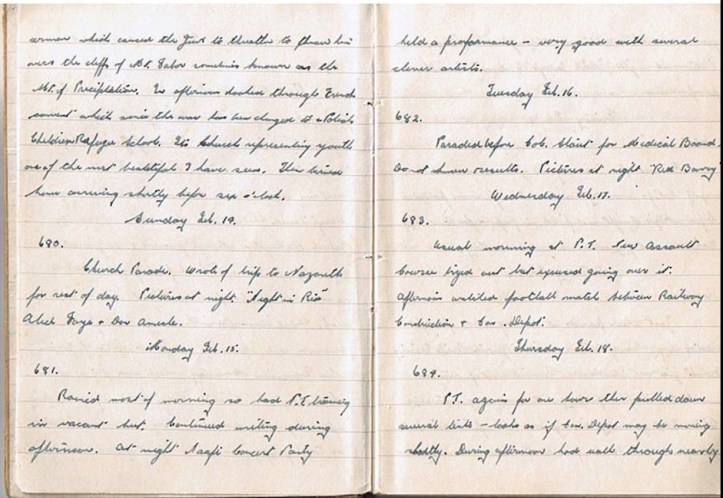 sermon which caused the Jews to threaten to throw him
over the cliffs of Mt. Tabor sometimes known as the
Mt. of Precipitation. In afternoon looked through French
convent which since the war has been changed to a Polish
Children Refuge School. Its Church representing youth
one of the most beautiful I have seen. Then
home arriving shortly before six o'clock.
Sunday Feb. 14.
680.
Church Parade. Wrote of trip to Nazareth
for rest of day. Pictures at night "Night in Rio"
Alice Faye + Don Ameche.
Monday Feb. 15.
681.
Rained most of morning so had P.T. training
in vacant hut. Continued writing during
afternoon. At night Naafi Concert Party
held a proformance - very good with several
clever artists.
Tuesday Feb. 16.
682.
Paraded before Col. for Medical Board
do not know results. Pictures at night Red Barry
Wednesday Feb. 17.
683.
Usual morning at P.T. New Assault
Course tryed out but excused going over it.
Afternoon watched football match between Railway
Construction + Con. Depot.
Thursday Feb. 18.
684.
P.T. again for one hour then pulled down
several tents - looks as if Con. Depot may be moving
shortly. During afternoon had walk through nearby